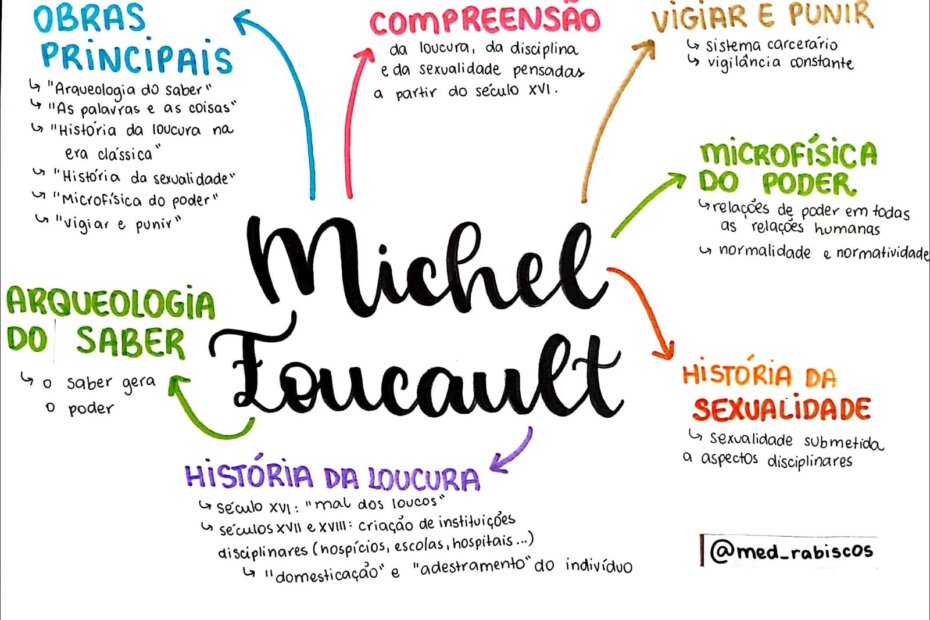 OBRAS
PRINCIPAIS
↳ "Arqueologia do saber"
↳ "As palavras e as coisas"
↳ "História da loucura na
era clássica"
↳ "História da sexualidade"
↳ "Microfísica do poder"
↳ "vigiar e punir"
COMPREENSÃO
da loucura, da disciplina
e da sexualidade pensadas
a partir do século XVI.
VIGIAR E PUNIR
↳ sistema carcerário
↳ vigilância constante
MICROFÍSICA
DO PODER.
↳ relações de poder em todas
as relações humanas
↳ normalidade e normatividade
Michel
Foucault
ARQUEOLOGIA
DO SABER
↳ o saber gera
o poder
HISTÓRIA DA
SEXUALIDADE
↳ sexualidade submetida
a aspectos disciplinares
HISTÓRIA DA LOUCURA
↳ século XVI: "mal dos loucos"
↳ séculos XVII e XVIII: criação de instituições
disciplinares (hospícios, escolas, hospitais...)
↳ "domesticação" e "adestramento" do indivíduo
@med_rabiscos